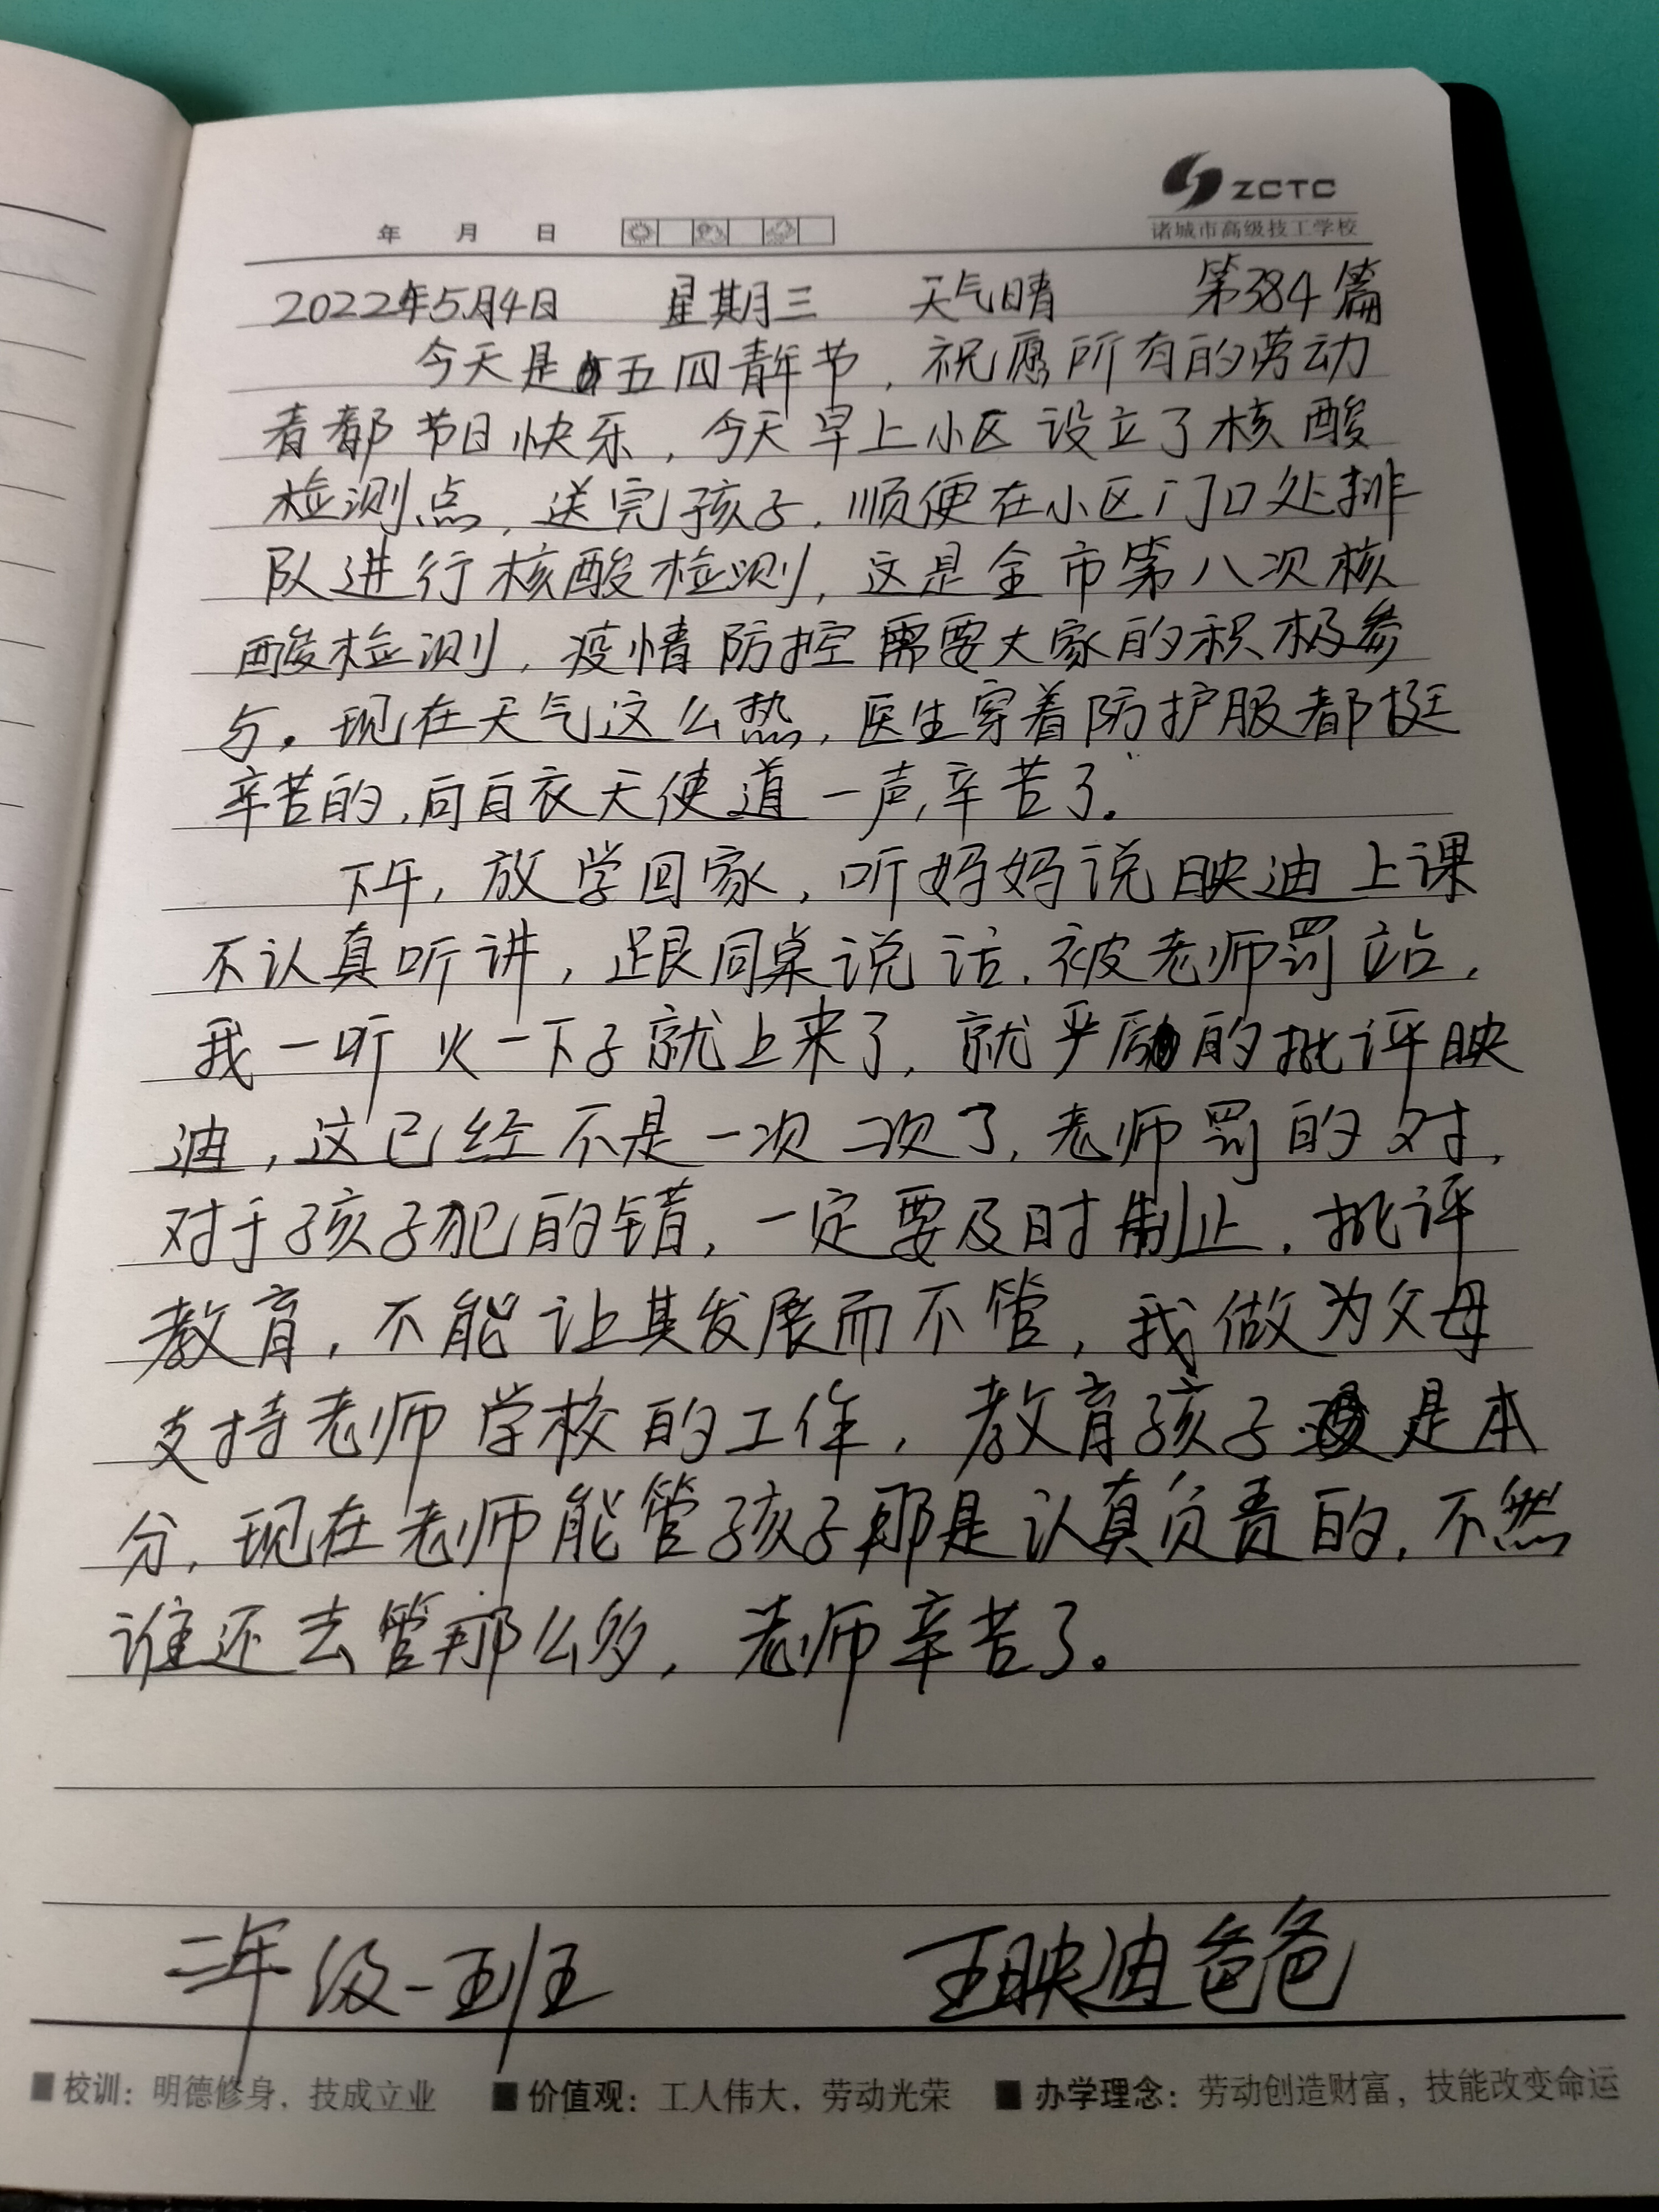 ZCTC
诸城市高级技工学校
年 月 日
2022年5月4日 星期三 天气晴 第384篇
今天是五四青年节，祝愿所有的劳动
者都节日快乐，今天早上小区设立了核酸
检测点，送完孩子，顺便在小区门口处排
队进行核酸检测，这是全市第八次核
酸检测，疫情防控需要大家的积极参
与。现在天气这么热，医生穿着防护服都挺
辛苦的，向白衣天使道一声，辛苦了。
下午，放学回家，听妈妈说映迪上课
不认真听讲，跟同桌说话，被老师罚站，
我一听火一下子就上来了，就严厉的批评映
迪，这已经不是一次二次了，老师罚的对，
对于孩子犯的错，一定要及时制止，批评
教育，不能让其发展而不管，我做为父母
支持老师学校的工作，教育孩子是本
分，现在老师能管孩子那是认真负责的，不然
谁还去管那么多，老师辛苦了。
二年级一班 王映迪爸爸
■校训：明德修身，技成立业 ■价值观：工人伟大，劳动光荣 ■办学理念：劳动创造财富，技能改变命运